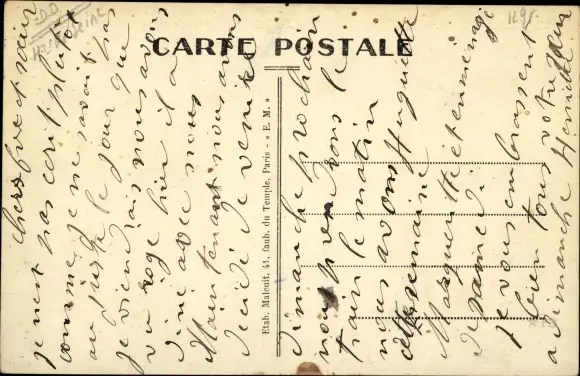 CARTE POSTALE
Etab. Malcuit, 41, faub. du Temple, Paris - « E. M. »
chers frère et soeur
je n'est pas ecrit plutot
comme je ne savait pas
au juste le jour que
je viendrais nous avons
vu roge hier il a
diné avec nous
Maintenant nous avons
decidé de venir le
dimanche prochain
nous prendrons le
train le matin
nous avons Huguette
cette semaine
Marguerite et en menage
de samedi
je vous embrassent
bien tous votre soeur
a dimanche Henriette